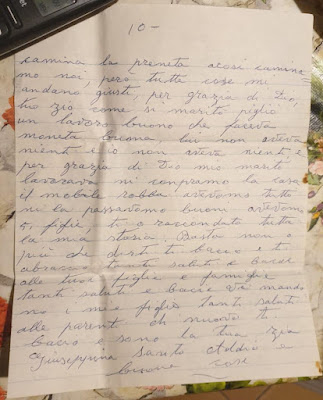 10 -
camina la preneta acosi camina
mo noi, però tutte cose mi
andano giusti, per grazia di Dio,
tio zio come si marito piglio
un lavoro buono che faceva
moneta bicona lui non aveva
nienti e io non aveva niente e
per grazia di Dio mio marito
lavorava ni conpramo la casa
il mobale robba avevamo tutto
ni la passavamo buoni avevamo
figlie, ti o racontato tutta
la mia storia. Basta non o
più che darti ti bacio e ti
abraccio tanti saluti e bacie
alle tuoe figlie e famiglie
tanti saluti e bacie vi mando
no i mie figlie tanti saluti
alle parenti di nuovo ti
bacio e sono la tua zia
Giuseppina Santo Addio e
buone cose